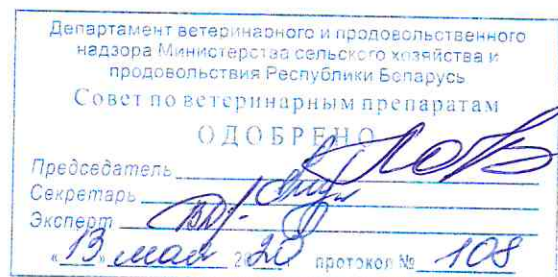 Департамент ветеринарного и продовольственного
надзора Министерства сельского хозяйства и
продовольствия Республики Беларусь
Совет по ветеринарным препаратам
ОДОБРЕНО
Председатель
Секретарь
Эксперт
«13» мая 2020 протокол № 108